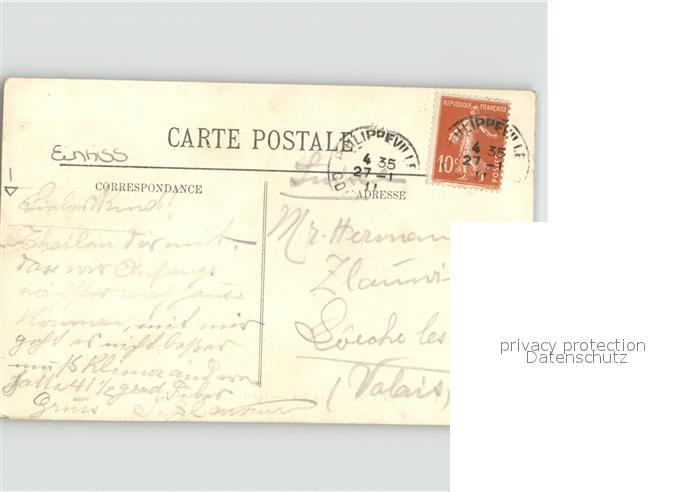 Einriss
CARTE POSTALE
CORRESPONDANCE
ADRESSE
PHILIPPEVILLE
4 35
27 - 1
11
REPUBLIQUE FRANÇAISE
10c
POSTES
PHILIPPEVILLE
4 35
27 - 1
11
Suisse
Lieber Kind!
Theilen dir mit,
dass wir Anfangs
nächster nach Hause
kommen, mit mir
geht es nicht besser
muss Klima andern
hatte 41 1/2 grad Fieber
Gruss
Mr. Herman
Loèche les
(Valais)
privacy protection
Datenschutz